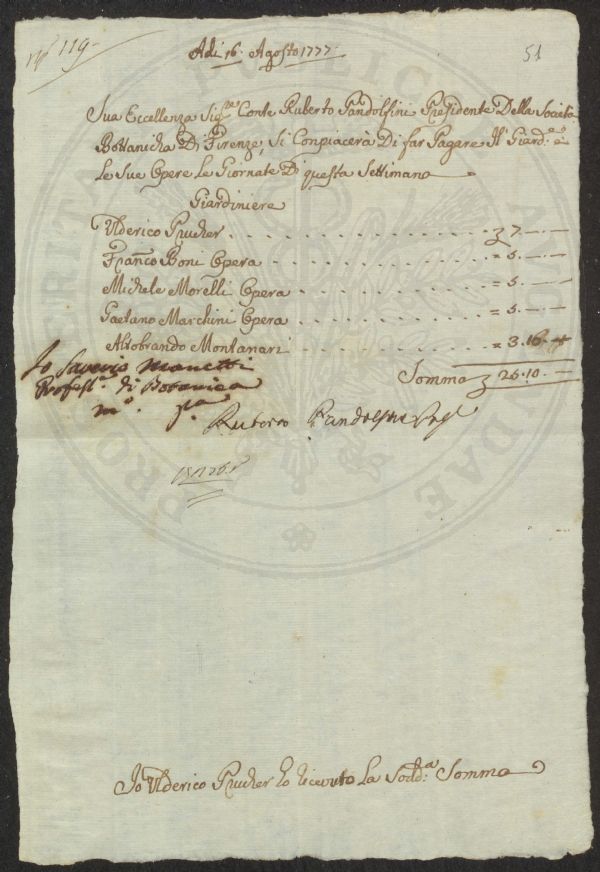 Nº 119.
51
Adi 16. Agosto 1777.
Sua Eccellenza Sig.re Conte Ruberto Pandolfini Presidente Della Società
Bottanicha Di Firenze, Si Conpiacerà Di far Pagare Il Giard.e e
Le Sue Opere Le Giornate Di questa Settimana
Giardiniere
Ulderico Prucher . . . . . . . . 7. — . —
Fran.co Boni Opera . . . . . . . = 5. — . —
Michele Morelli Opera . . . . . . = 5. — . —
Gaetano Marchini Opera . . . . . . = 5. — . —
Altobrando Montanari . . . . . . = 3. 16. 4
Somma 26. 10. —
Io Saverio Manetti
Profess.e di Botanica
m.º p.a
Ruberto Pandolfini
Io Ulderico Prucher ho ricevuto La Sodd.a Somma
PROSPERITATI PUBLICAE AUGENDAE